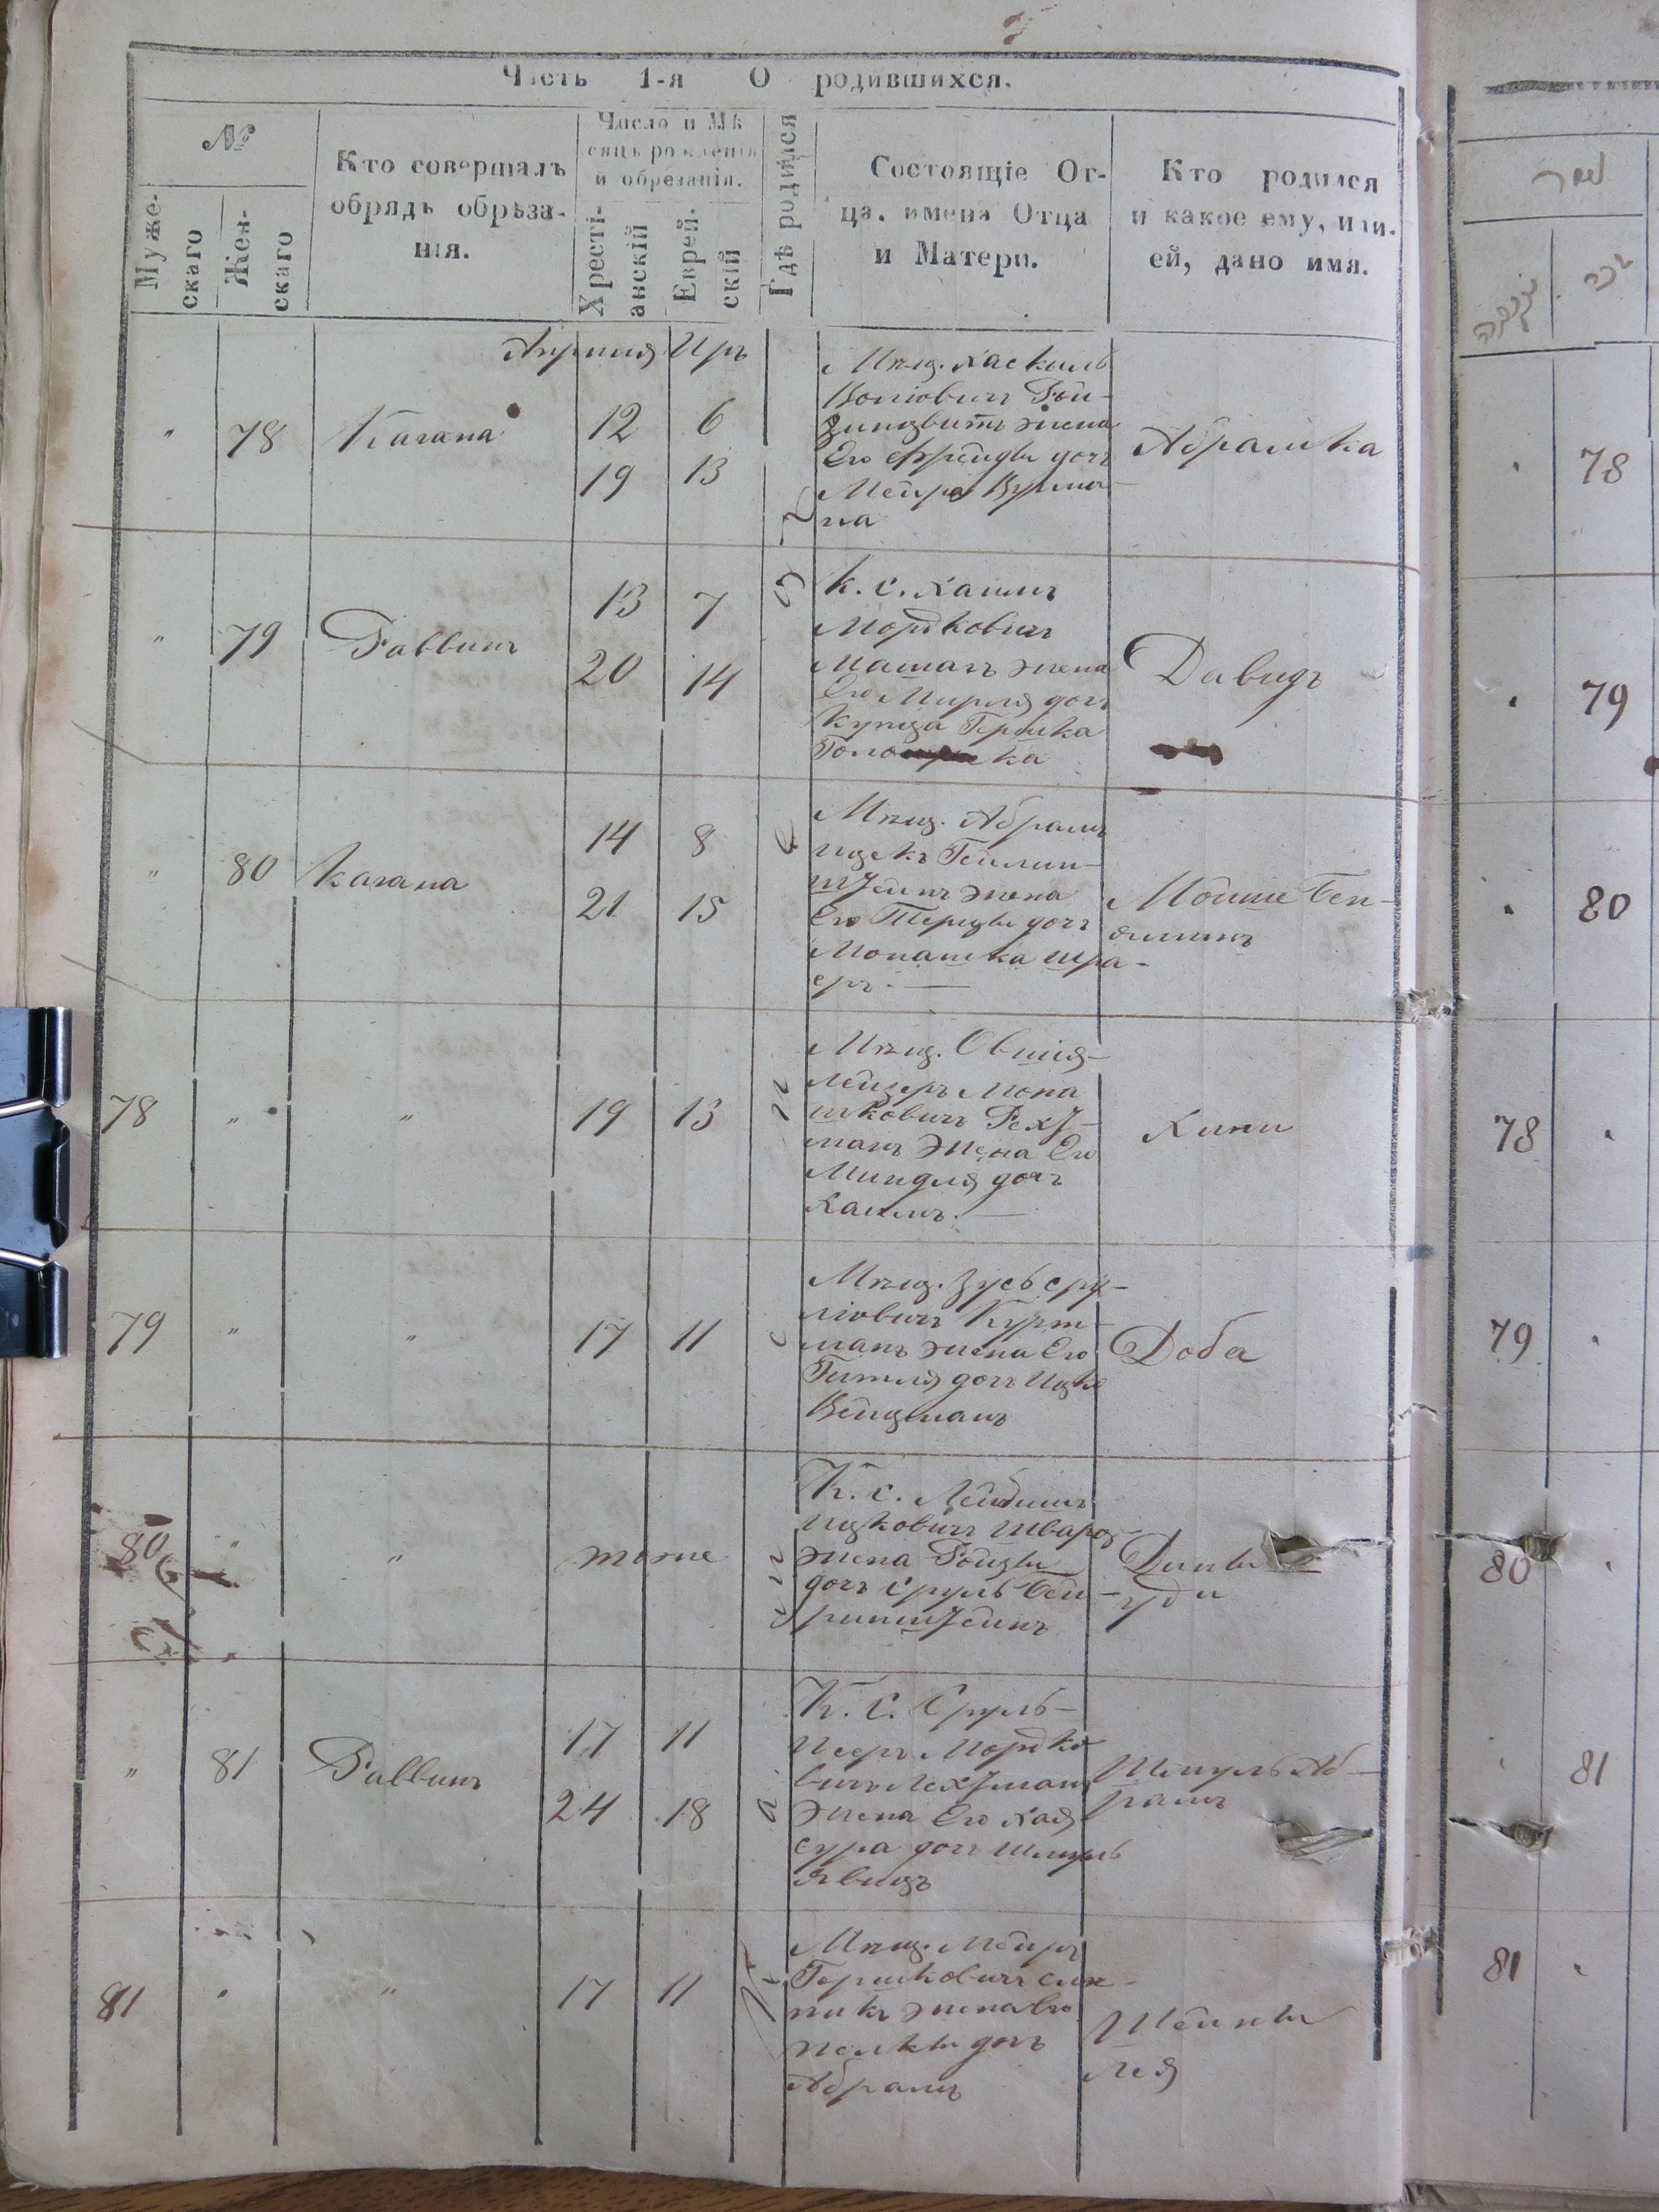 Часть 1-я О родившихся.
№
Мужескаго
Женскаго
Кто совершалъ
обрядъ обрѣза-
нія.
Число и Мѣ
сяцъ рожденія
и обрѣзанія.
Хресті-
анскій
Еврей-
скій
Гдѣ родился
Состоящіе От-
ца, имена Отца
и Матери.
Кто родился
и какое ему, или
ей, дано имя.
Апрѣля Иръ
" 78 Кагана
12 6
19 13
Мѣщ. Хаскель
жена
Его Фрейда дочь
Мейра Вулма-
на
Абрашка
" 79 Раввинъ
13 7
20 14
К. С. Хаимъ
Мордковичъ
жена
Его Мирля дочь
купца Гершка
Давидъ
" 80 Кагана
14 8
21 15
Мѣщ. Абрамъ
Ицекъ
жена
Его Терцы дочь
Монашка Шра-
еръ.
Мошше Бен-
яминъ
78 " "
19 13
Мѣщ. Овшія-
Лейзеръ Мона
шковичъ Рехт-
манъ жена Его
Миндля дочь
Хаимъ.
79 " "
17 11
Мѣщ. Зусь Сру-
ліовичъ Курт-
манъ жена Его
Гитля дочь Ицка
Вейцманъ
Доба
80 " "
тоже
К. С. Лейбишъ
Ицковичъ Шварц-
жена Ройзы
дочь Сруль Бей-
ринштейнъ
" 81 Раввинъ
17 11
24 18
К. С. Сруль-
Исеръ Мордко
вичъ Лехтманъ
жена Его Хая
Сура дочь Шмуль
Явицъ
Шмуль Аб-
рамъ
81 " "
17 11
Мѣщ. Мейръ
Гершковичъ
жена Его
дочь
Абрамъ
Шейны
Лея
נקבה
זכר
78
79
80
78
79
80
81
81